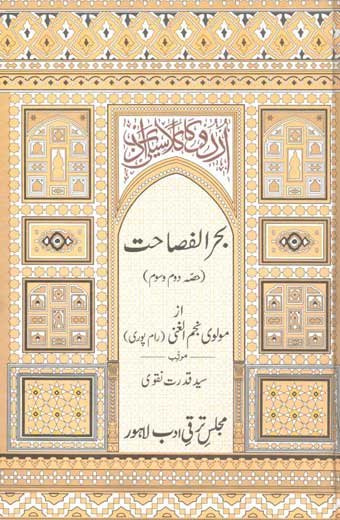 اردو کا کلاسیکی ادب
بحر الفصاحت
(حصّہ دوم و سوم)
از
مولوی نجم الغنی (رام پوری)
مرتّب
سید قدرت نقوی
مجلس ترقیِ ادب لاہور